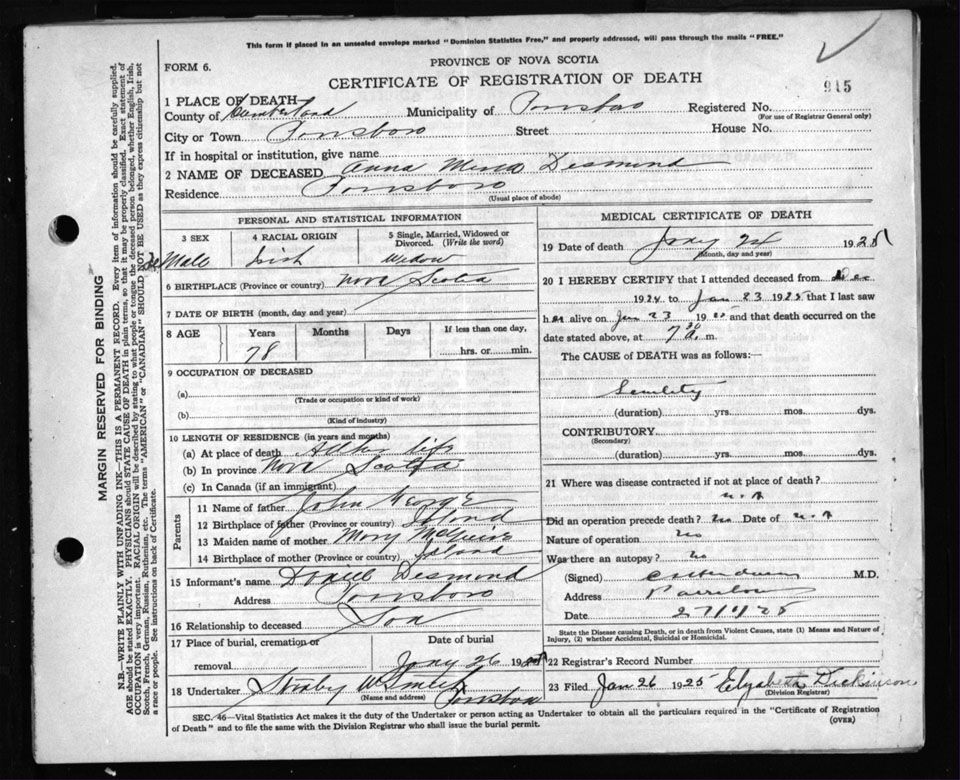 This form if placed in an unsealed envelope marked "Dominion Statistics Free," and properly addressed, will pass through the mails "FREE."
FORM 6.
PROVINCE OF NOVA SCOTIA
CERTIFICATE OF REGISTRATION OF DEATH
915
1 PLACE OF DEATH—
County of Cumberland Municipality of Registered No.
(For use of Registrar General only)
City or Town Street House No.
If in hospital or institution, give name
2 NAME OF DECEASED Anna Desmond
Residence
(Usual place of abode)
PERSONAL AND STATISTICAL INFORMATION
3 SEX 4 RACIAL ORIGIN 5 Single, Married, Widowed or Divorced. (Write the word)
FeMale Irish Widow
6 BIRTHPLACE (Province or country) Nova Scotia
7 DATE OF BIRTH (month, day and year)
8 AGE Years Months Days If less than one day,
78 hrs. or min.
9 OCCUPATION OF DECEASED
(a)
(Trade or occupation or kind of work)
(b)
(Kind of industry)
10 LENGTH OF RESIDENCE (in years and months)
(a) At place of death All her life
(b) In province Nova Scotia
(c) In Canada (if an immigrant)
Parents
11 Name of father John George
12 Birthplace of father (Province or country)
13 Maiden name of mother Mary McGuire
14 Birthplace of mother (Province or country)
15 Informant's name Desmond
Address
16 Relationship to deceased Son
17 Place of burial, cremation or removal Date of burial
26 1925
18 Undertaker
(Name and address)
MEDICAL CERTIFICATE OF DEATH
19 Date of death 24 1925
(Month, day and year)
20 I HEREBY CERTIFY that I attended deceased from Dec
1924 to Jan 23 1925 that I last saw
her alive on Jan 23 19 and that death occurred on the
date stated above, at 7 30 a. m.
The CAUSE of DEATH was as follows:
Senility
(duration) yrs. mos. dys.
CONTRIBUTORY
(Secondary)
(duration) yrs. mos. dys.
21 Where was disease contracted if not at place of death?
Did an operation precede death? no Date of
Nature of operation no
Was there an autopsy? no
(Signed) M.D.
Address Parrsboro
Date 27/1/25
State the Disease causing Death, or in death from Violent Causes, state (1) Means and Nature of Injury, (2) whether Accidental, Suicidal or Homicidal.
22 Registrar's Record Number
23 Filed Jan 26 1925 Elizabeth Dickinson
(Division Registrar)
SEC. 46—Vital Statistics Act makes it the duty of the Undertaker or person acting as Undertaker to obtain all the particulars required in the "Certificate of Registration
of Death" and to file the same with the Division Registrar who shall issue the burial permit.
(OVER)
MARGIN RESERVED FOR BINDING
N.B.—WRITE PLAINLY WITH UNFADING INK—THIS IS A PERMANENT RECORD. Every item of information should be carefully supplied.
AGE should be stated EXACTLY. PHYSICIANS should STATE CAUSE OF DEATH in plain terms, so that it may be properly classified. Exact statement of
OCCUPATION is very important. RACIAL ORIGIN will be described by stating to what people or tongue the deceased person belonged, whether English, Irish,
Scotch, French, German, Russian, Ruthenian, etc. The terms "AMERICAN" or "CANADIAN" SHOULD NOT BE USED as they express citizenship but not
a race or people. See instructions on back of Certificate.